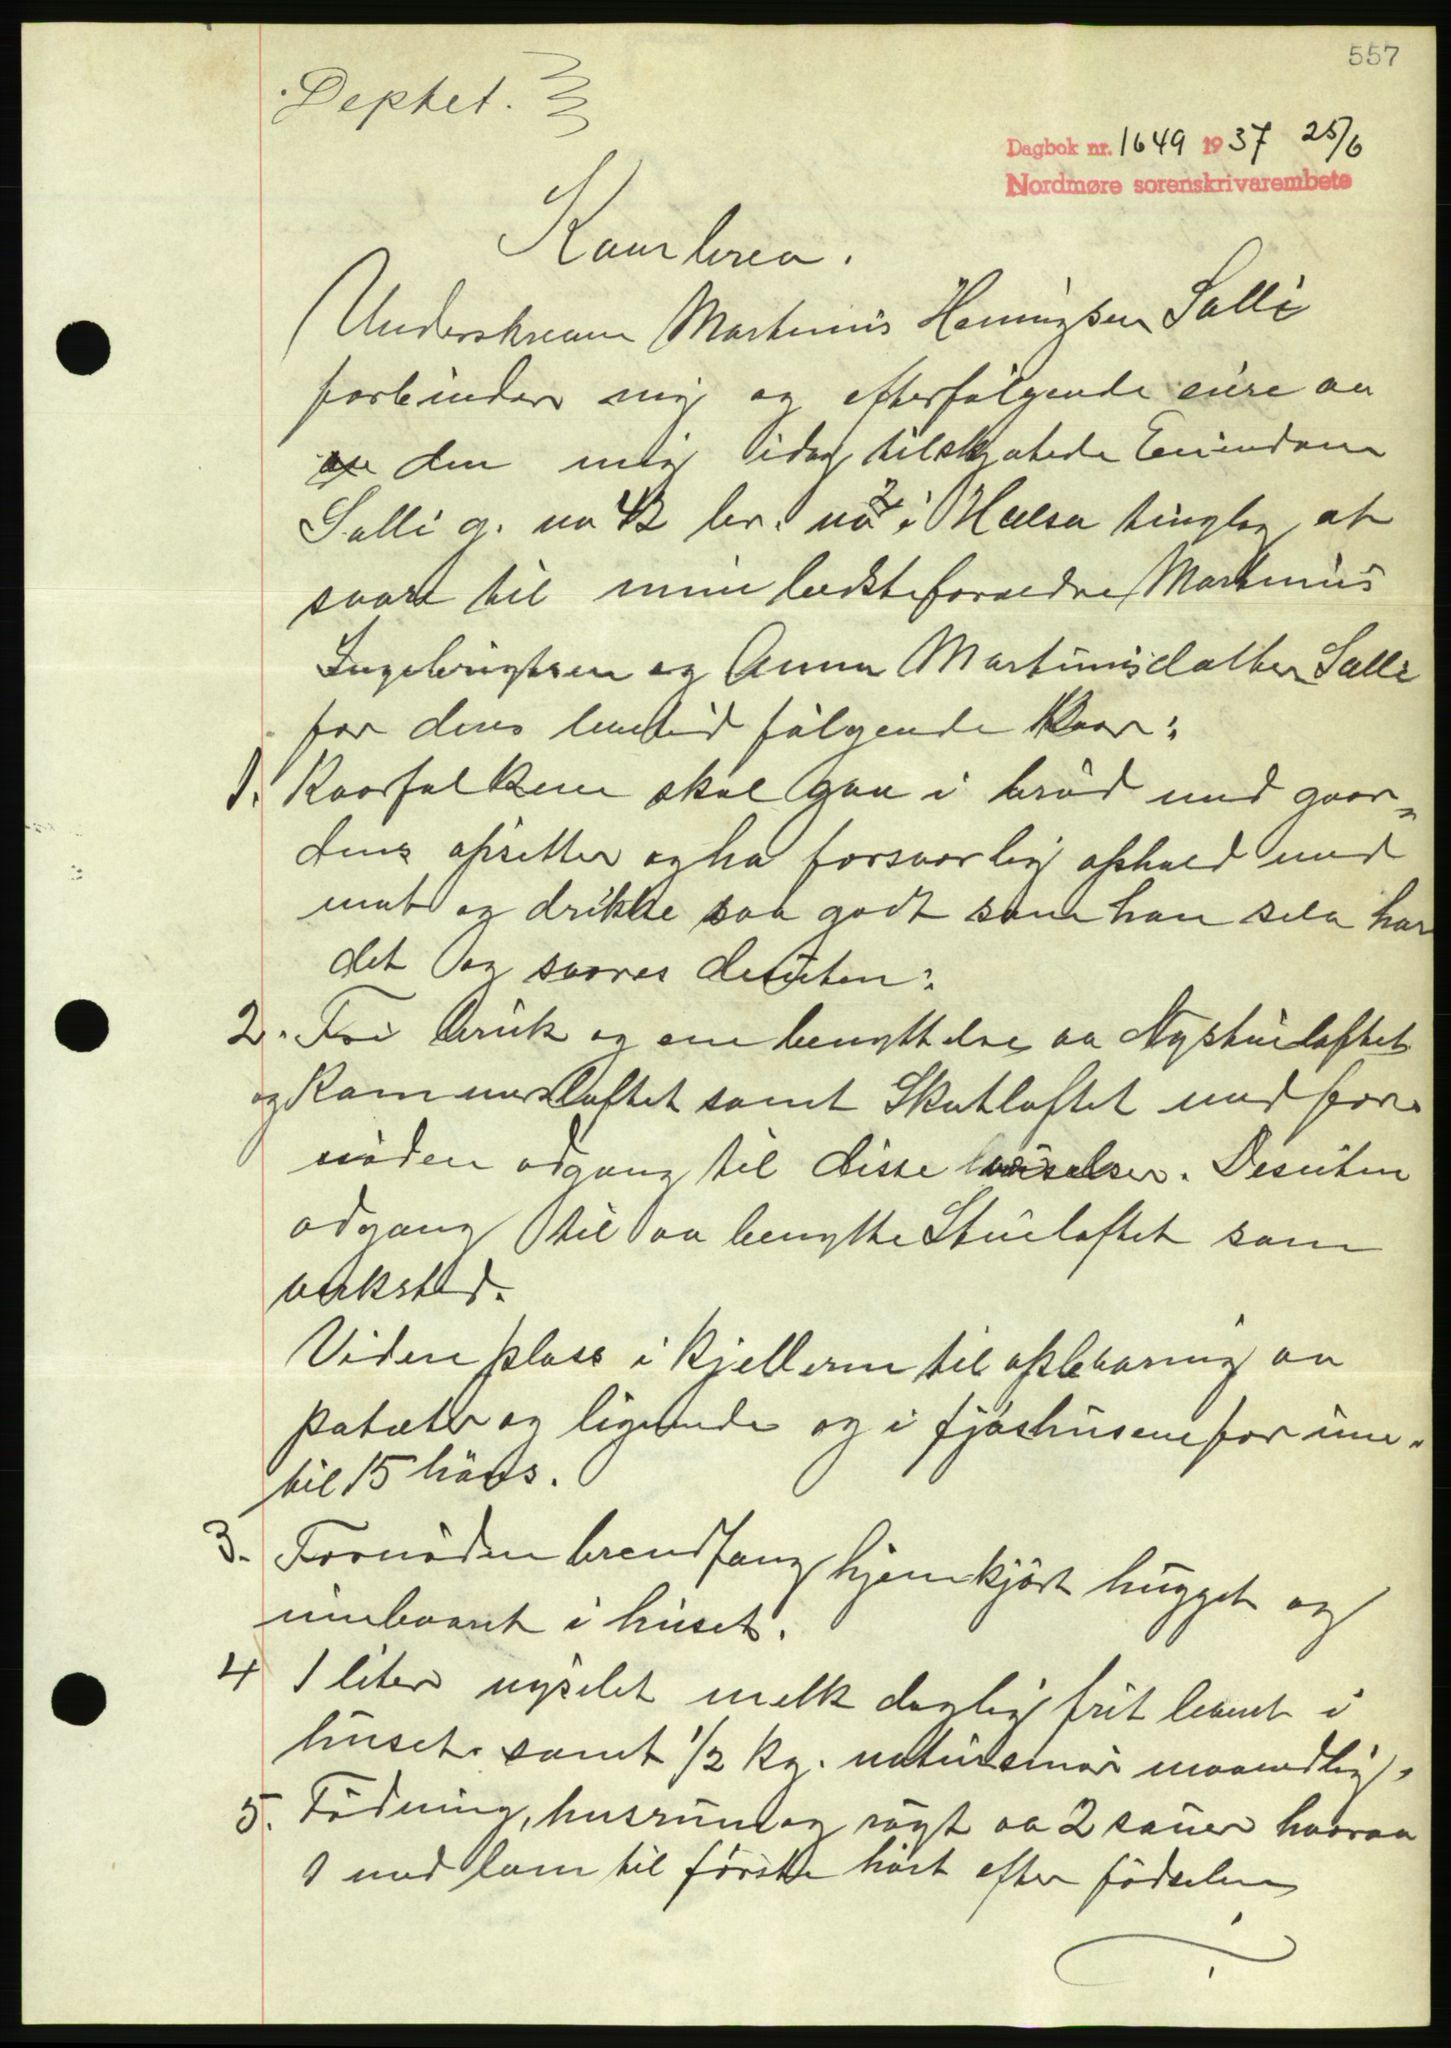 557
Dephet.
Dagbok nr. 1649 1937 25/6
Nordmøre sorenskrivarembete
Kaarbrev.
Underskreven Martinus Henrigsen Salli
forbinder mig og efterfølgende eiere av
den mig idag tilskjøtede Eiendom
Salli g. no 42 br. no 2 i Halsa tinglag at
svare til mine bedsteforældre Martinus
Ingebrigtsen og Anna Martinusdatter Salli
for deres levetid følgende Kaar:
1. Kaarfolkene skal gaa i brød med gaar-
dens opsitter og ha forsvarlig ophold med
mat og drikke saa godt som han selv har
det og svares desuten:
2. Fri bruk og ene benyttelse av Nystueloftet
og Kammersloftet samt Skutloftet med for-
nøden adgang til disse værelser. Desuten
adgang til aa benytte Stueloftet som
verksted.
Videre plass i kjelleren til opbevaring av
poteter og lignende og i fjøshusene for inn-
til 15 høns.
3. Fornøden brendfang hjemkjørt hugget og
innbaaret i huset.
4 1 liter nysilet melk daglig frit levert i
huset. samt 1/2 kg. natursmør maanedlig.
5. Fødning, husrum og røgt av 2 sauer hvorav
1 med lam til første høst efter fødselen